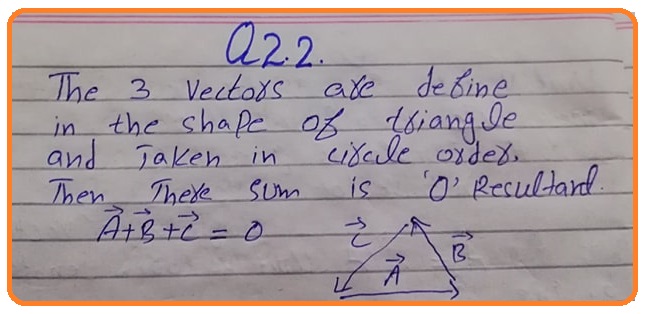 Q2.2.
The 3 Vectors are define
in the shape of triangle
and Taken in circule order.
Then There sum is 'O' Resultard.
A⃗+B⃗+C⃗ = 0
C⃗
B⃗
A⃗